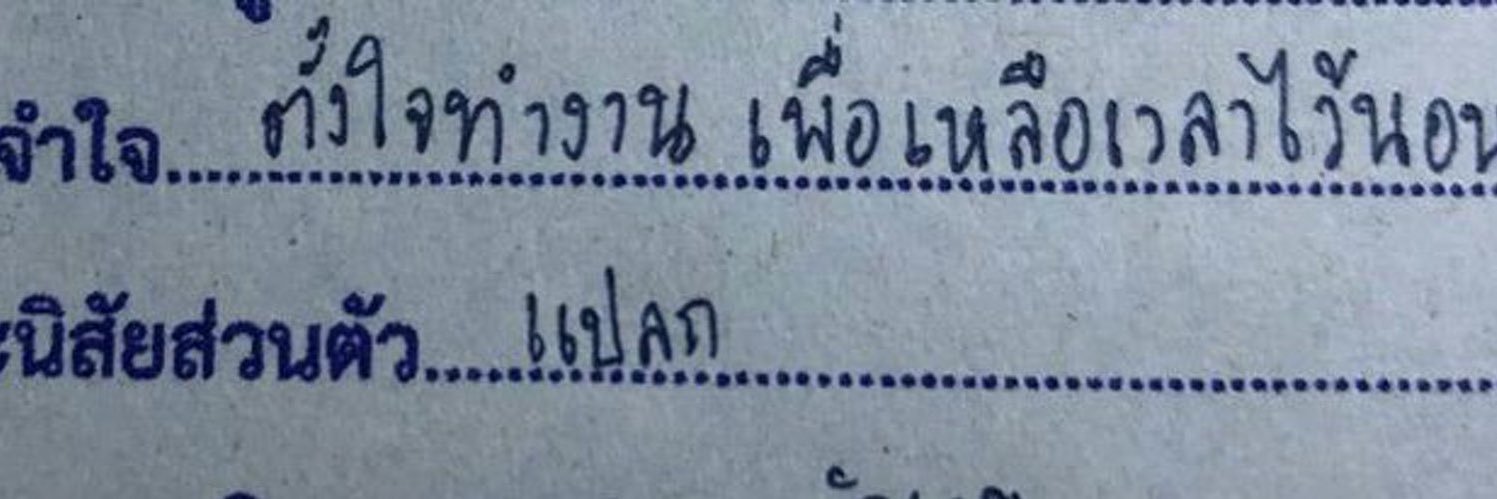 จำใจ....ตั้งใจทำงาน เพื่อเหลือเวลาไว้นอน
ะนิสัยส่วนตัว....แปลก